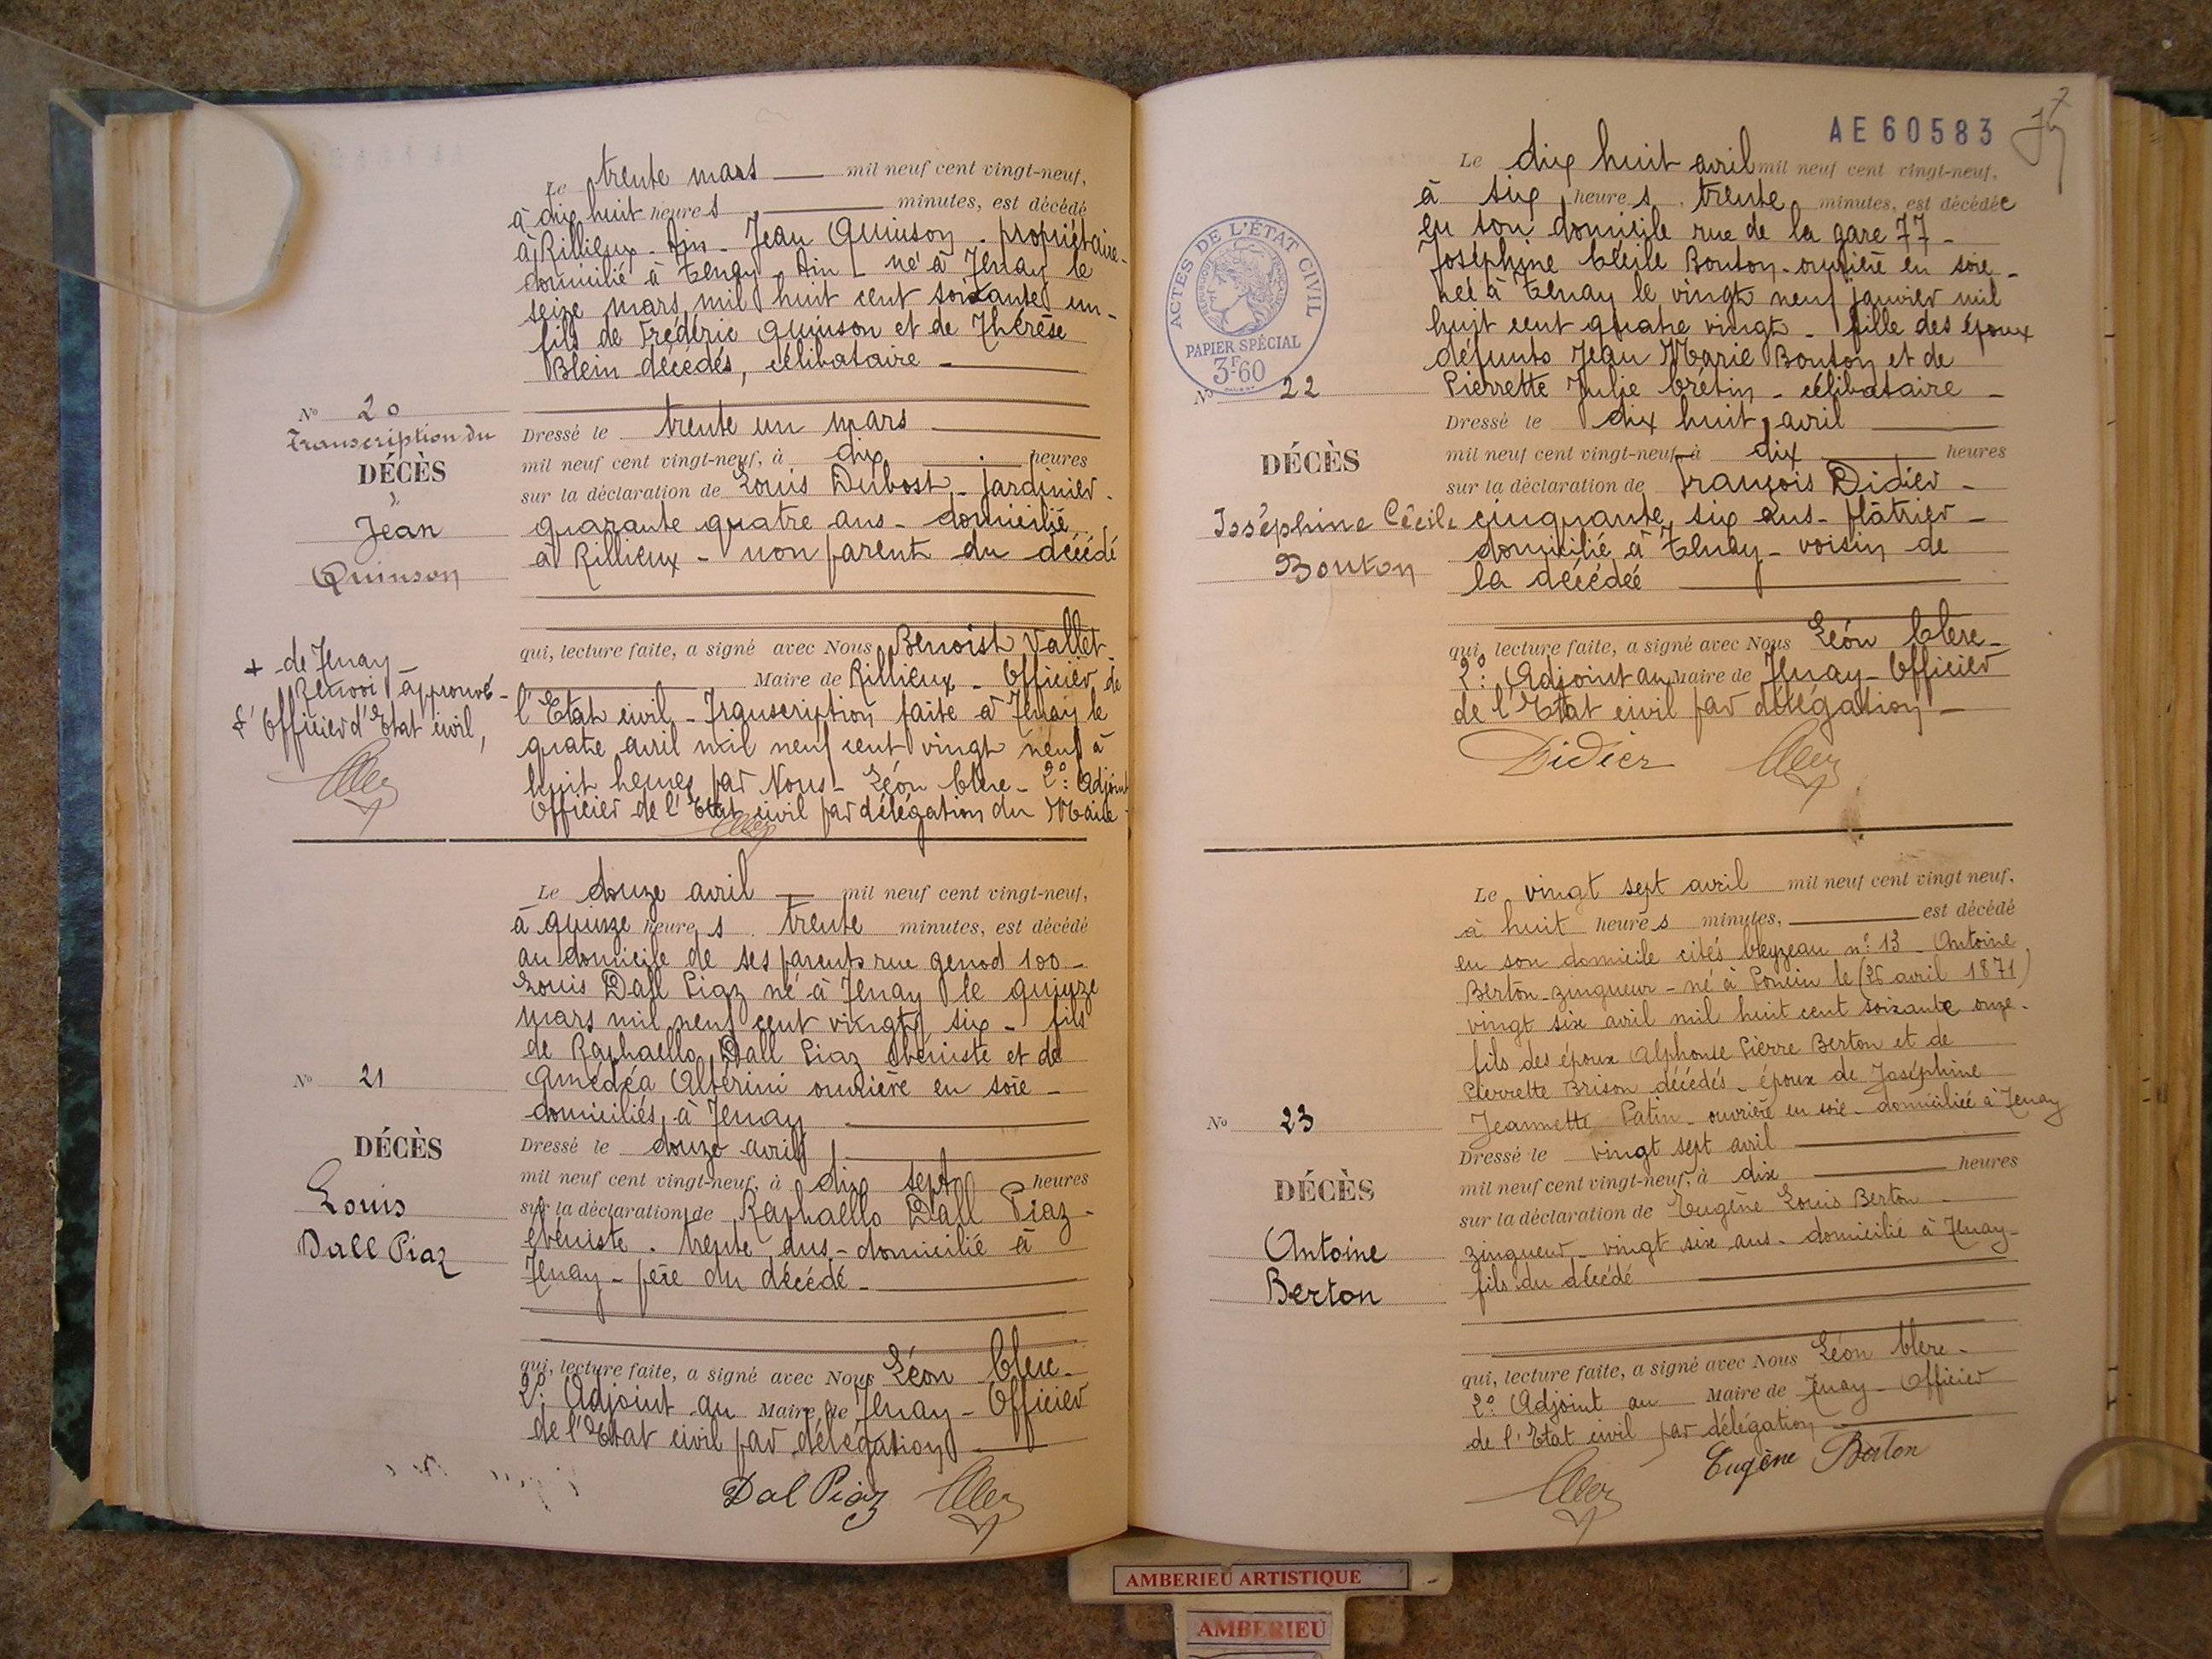 Le trente mars mil neuf cent vingt-neuf,
à dix huit heures minutes, est décédé
à Rillieux - Ain - Jean Quinson - propriétaire -
domicilié à Tenay - Ain - né à Tenay le
seize mars mil huit cent soixante un -
fils de Frédéric Quinson et de Thérèse
Blein décédés, célibataire -
N° 20
Transcription du
DÉCÈS
Jean
Quinson
Dressé le trente un mars
mil neuf cent vingt-neuf, à dix heures
sur la déclaration de Louis Dubost - jardinier -
quarante quatre ans - domicilié
à Rillieux - non parent du décédé
qui, lecture faite, a signé avec Nous Benoist Vallet -
Maire de Rillieux - Officier de
l'Etat civil - Transcription faite à Tenay le
quatre avril mil neuf cent vingt neuf à
huit heures par Nous - Léon Clerc - 2e: Adjoint
Officier de l'Etat civil par délégation du Maire -
+ de Tenay -
Renvoi approuvé -
L'Officier d'Etat civil,
Le douze avril mil neuf cent vingt-neuf,
à quinze heures trente minutes, est décédé
au domicile de ses parents rue genod 100 -
Louis Dall Piaz né à Tenay le quinze
mars mil neuf cent vingt six - fils
de Raphaello Dall Piaz ébéniste et de
Amédéa Altérini ouvrière en soie -
domiciliés à Tenay
N° 21
DÉCÈS
Louis
Dall Piaz
Dressé le douze avril
mil neuf cent vingt-neuf, à dix sept heures
sur la déclaration de Raphaello Dall Piaz -
ébéniste - trente ans - domicilié à
Tenay - père du décédé -
qui, lecture faite, a signé avec Nous Léon Clerc -
2e: Adjoint au Maire de Tenay - Officier
de l'Etat civil par délégation
Dal Piaz
AE 60583
Le dix huit avril mil neuf cent vingt-neuf,
à six heures trente minutes, est décédée
en son domicile rue de la gare 77 -
Joséphine Cécile Bouton - ouvrière en soie -
née à Tenay le vingt neuf janvier mil
huit cent quatre vingt - fille des époux
défunts Jean Marie Bouton et de
Pierrette Julie Crétin - célibataire -
ACTES DE L'ÉTAT CIVIL
PAPIER SPÉCIAL
3F60
N° 22
DÉCÈS
Joséphine Cécile
Bouton
Dressé le dix huit avril
mil neuf cent vingt-neuf, à dix heures
sur la déclaration de François Didier -
cinquante six ans - plâtrier -
domicilié à Tenay - voisin de
la décédée
qui, lecture faite, a signé avec Nous Léon Clerc -
2e: Adjoint au Maire de Tenay - Officier
de l'Etat civil par délégation -
Didier
Le vingt sept avril mil neuf cent vingt neuf,
à huit heures minutes, est décédé
en son domicile cités n°: 13 - Antoine
Berton - zingueur - né à Poncin le (26 avril 1871)
vingt six avril mil huit cent soixante onze -
fils des époux Alphonse Pierre Berton et de
Pierrette Brison décédés - époux de Joséphine
Jeannette Patin - ouvrière en soie - domiciliée à Tenay
N° 23
DÉCÈS
Antoine
Berton
Dressé le vingt sept avril
mil neuf cent vingt-neuf, à dix heures
sur la déclaration de Eugène Louis Berton -
zingueur - vingt six ans - domicilié à Tenay -
fils du décédé
qui, lecture faite, a signé avec Nous Léon Clerc -
2e: Adjoint au Maire de Tenay - Officier
de l'Etat civil par délégation
Eugène Berton
AMBERIEU ARTISTIQUE
AMBERIEU